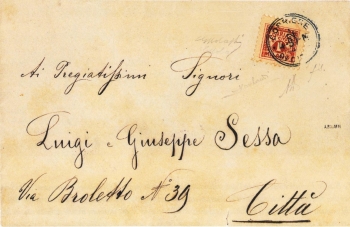 Ai Pregiatissimi Signori
Luigi e Giuseppe Sessa
Via Broletto N.º 39
Città